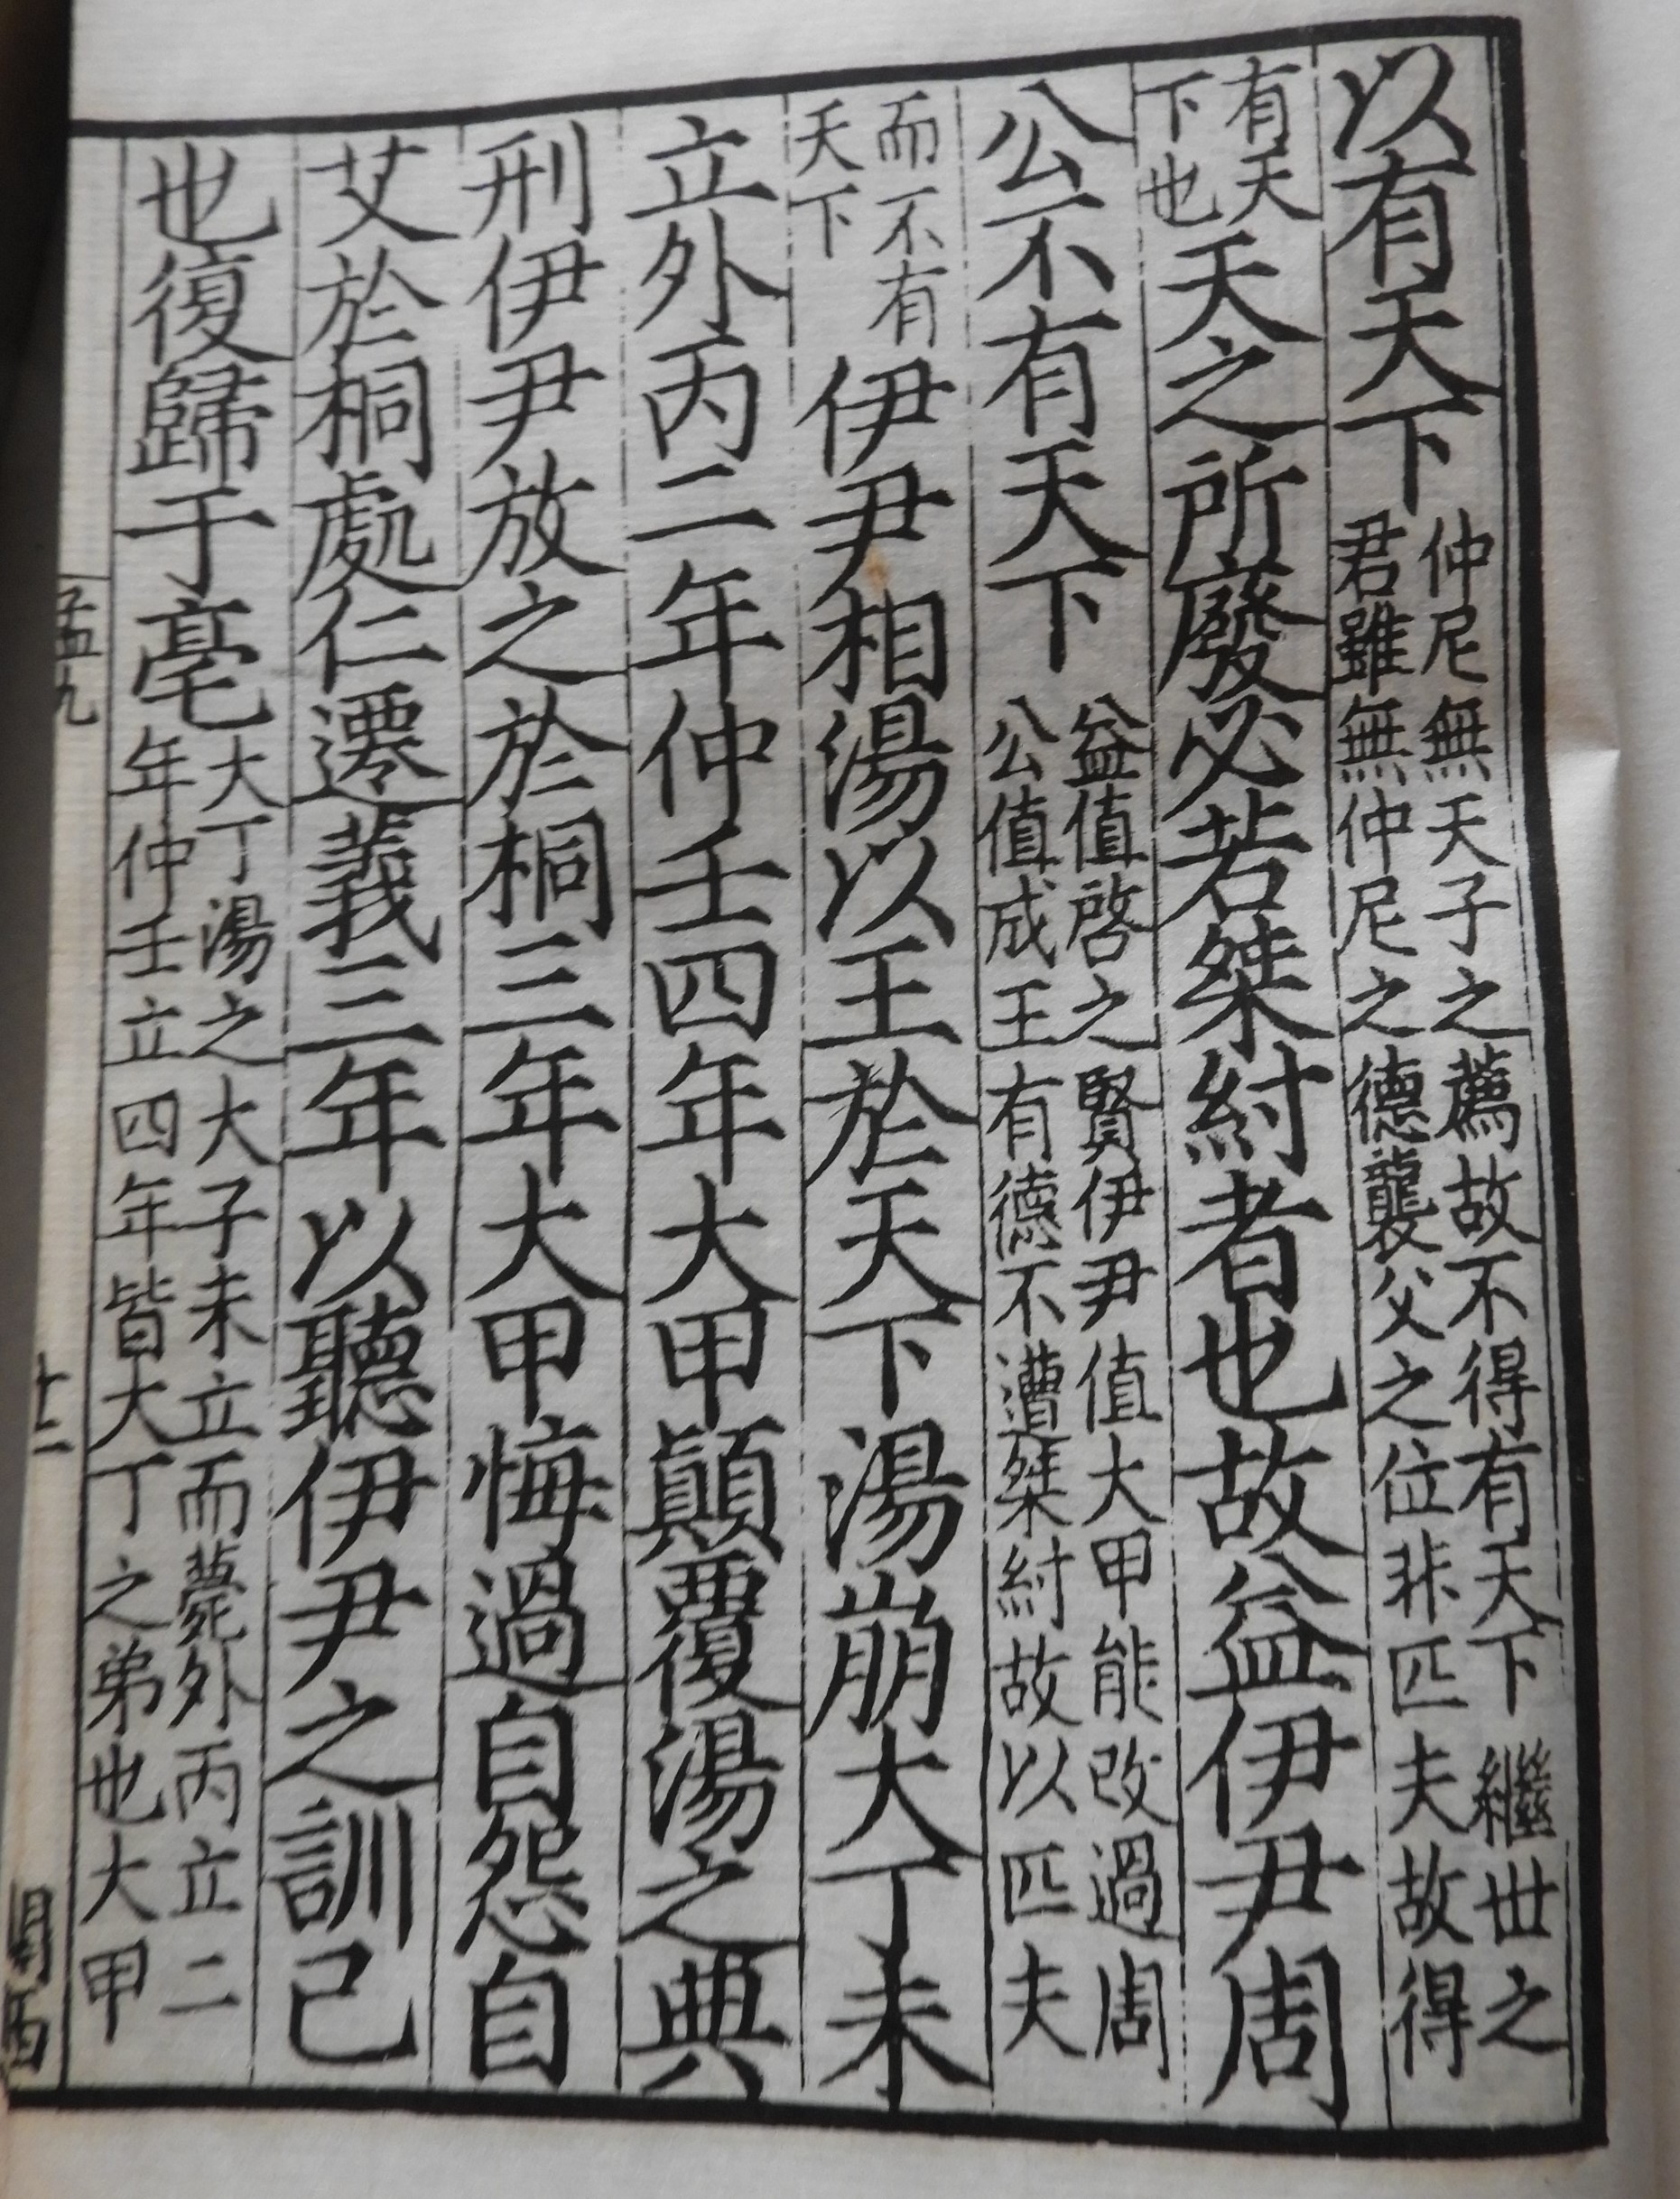 以有天下
仲尼無天子之薦故不得有天下繼世之
君雖無仲尼之德襲父之位非匹夫故得
有天
下也
天之所廢必若桀紂者也故益伊尹周
公不有天下
益值啓之賢伊尹值大甲能改過周
公值成王有德不遭桀紂故以匹夫
而不有
天下
伊尹相湯以王於天下湯崩大丁未
立外丙二年仲壬四年大甲顛覆湯之典
刑伊尹放之於桐三年大甲悔過自怨自
艾於桐處仁遷義三年以聽伊尹之訓己
也復歸于亳
大丁湯之大子未立而薨外丙立二
年仲壬立四年皆大丁之弟也大甲
孟五九
十二